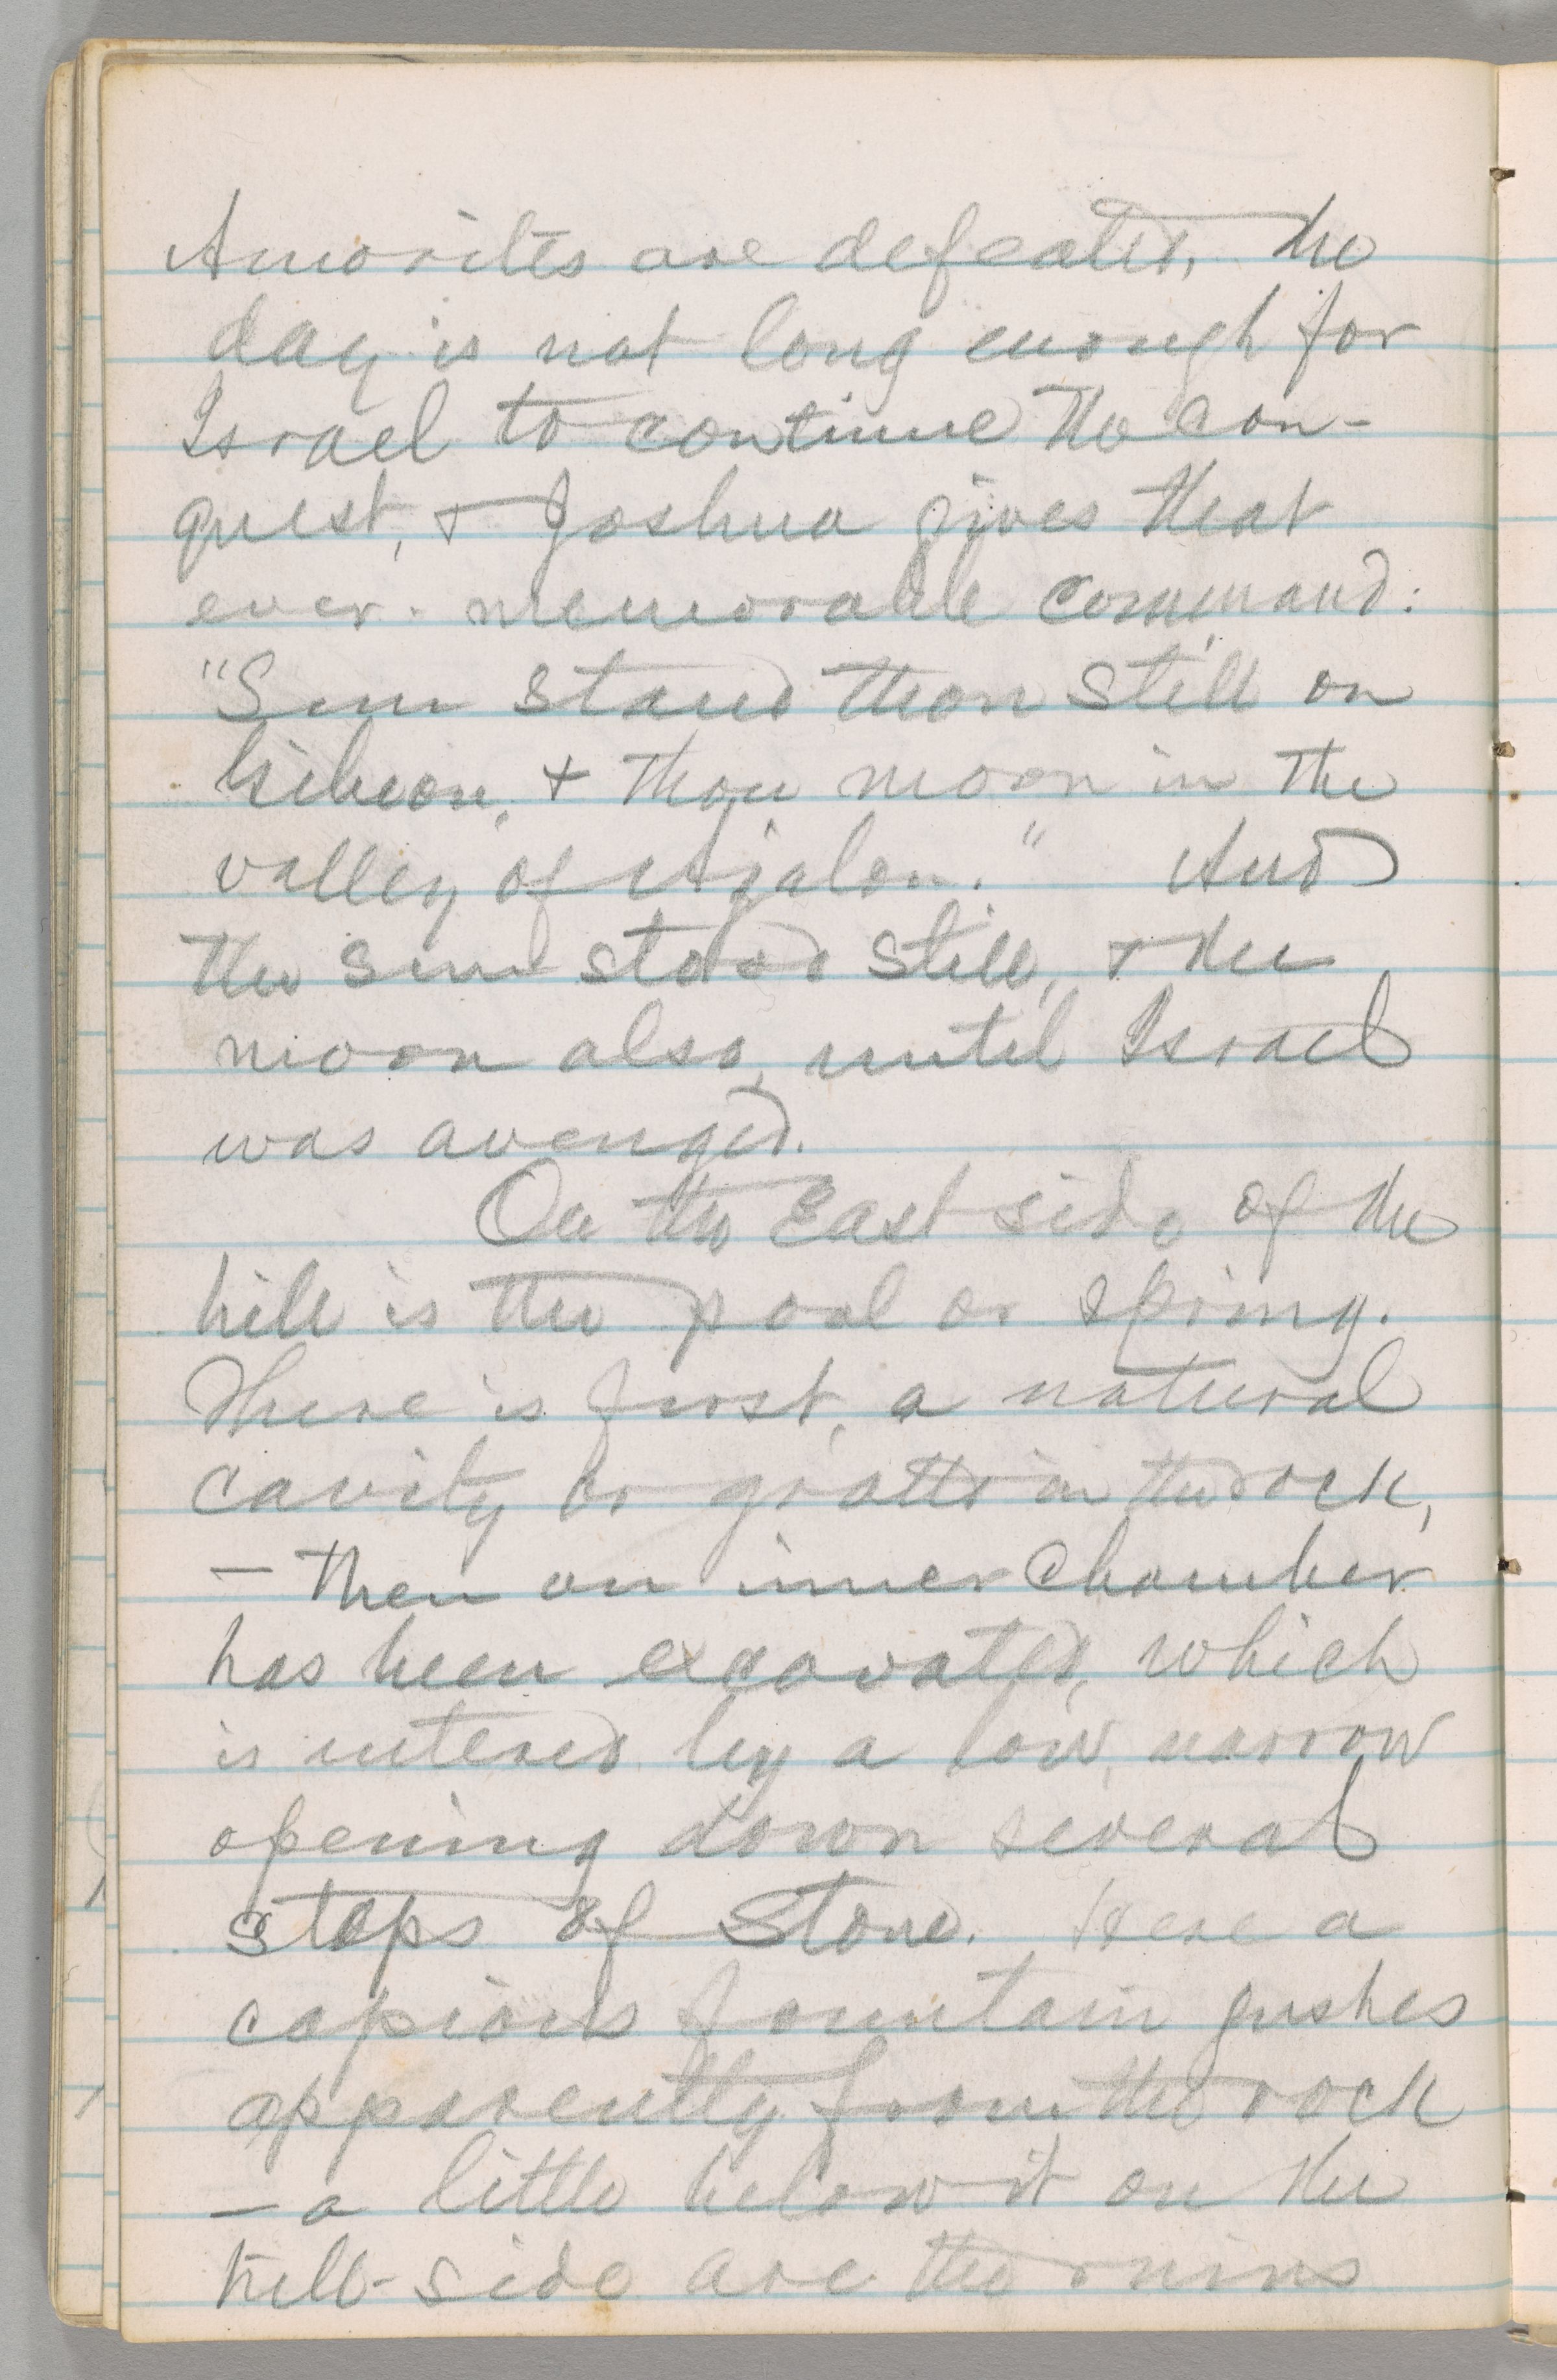 Amorites are defeated, the
day is not long enough for
Israel to continue the con-
quest, + Joshua gives that
ever-memorable command:
"Sun stand thou still on
Gibeon, + thou moon in the
valley of Ajalon." And
the sun stood still, + the
moon also, until Israel
was avenged.
On the East side of the
hill is the pool or spring.
There is first, a natural
cavity or grotto in the rock,
— then an inner chamber
has been excavated, which
is entered by a low, narrow
opening down several
steps of stone. Here a
copious fountain gushes
apparently from the rock
— a little below it on the
hill-side are the ruins